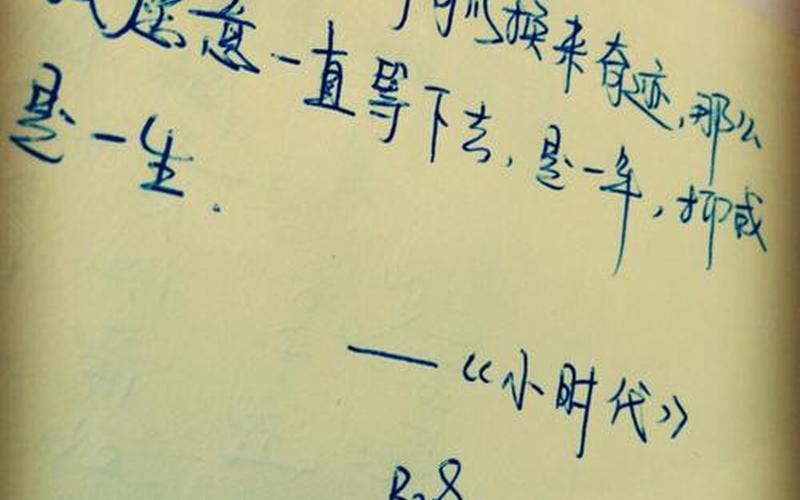 换来奇迹,那么
我愿意一直等下去,是一年,抑或
是一生.
——《小时代》